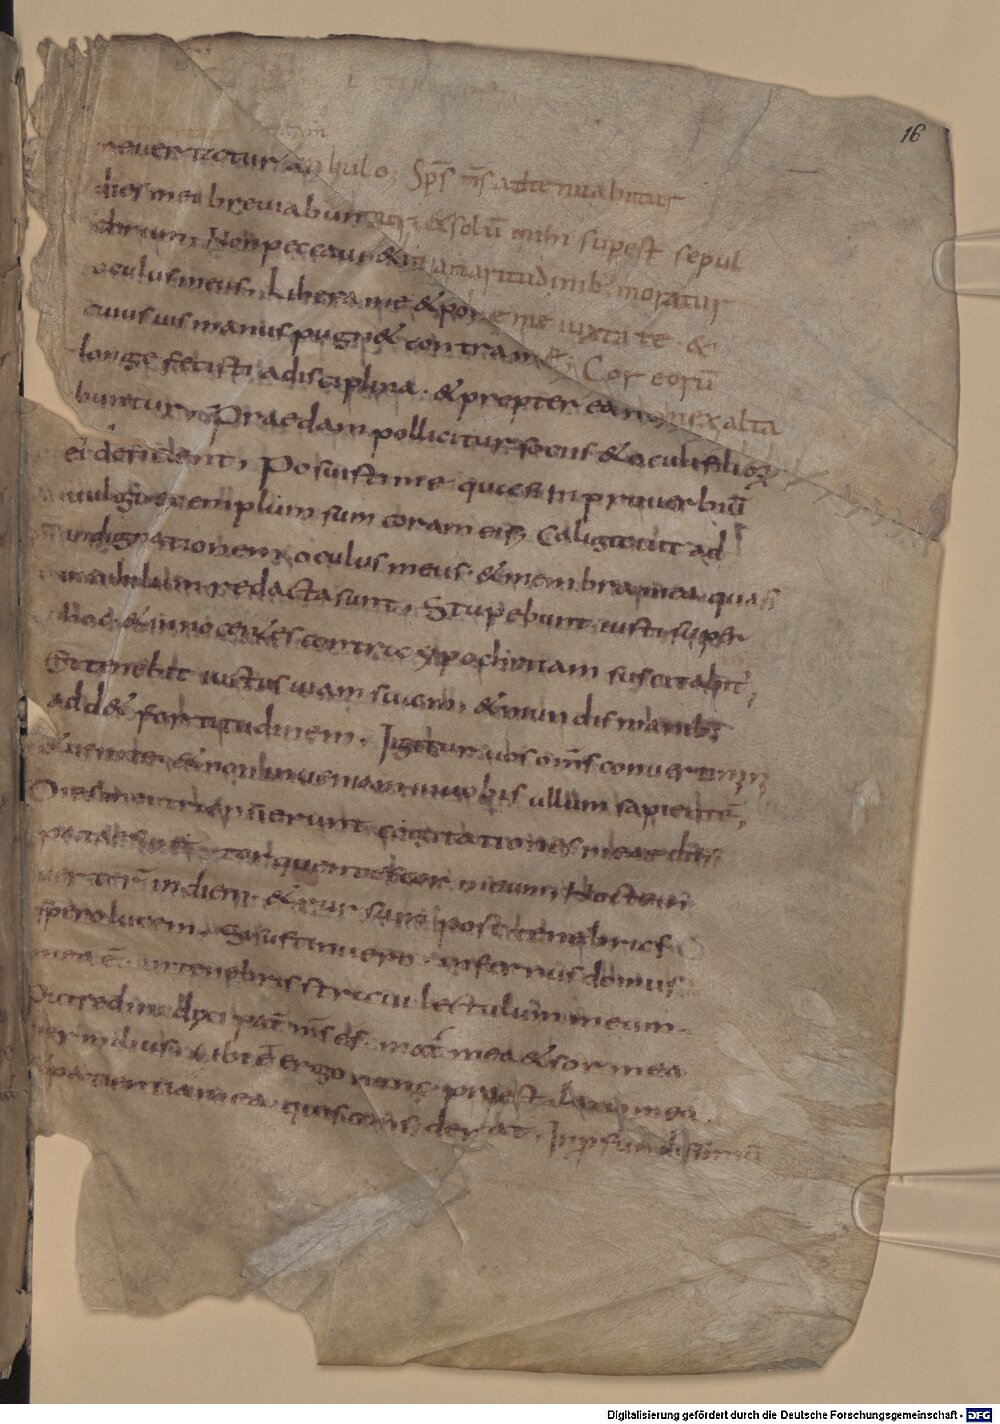 16
reuertatur ambulo; Sp̄s m̄s adtenuabitur
dies mei breuiabuntur, & solū mihi supest sepul
chrum. Non peccaui & in amaritudinib; moratur
oculus meus. Libera me & pone me iuxta te. &
cuius uis manus pugn& contra me; Cor eorū
longe fecisti a disciplina. & propter ea non exalta
buntur. Praedam pollicitur sociis & oculi filioꝝ
ei deficient. Posuisti me quasi in prouerbiū
uulgi exemplum sum coram eis; Caligauit ad
indignationem oculus meus. & membra mea quasi
in nihilum redacta sunt. Stupebunt iusti super
hoc. & innocentes contra ypochritam suscitabit᷑;
Et tenebit iustus uiam suam. & mundis manib;
add& fortitudinem. Igitur uos om̄s conuertimini
& uenite. & non inueniam in uobis ullum sapientē;
Dies mei transierunt cogitationes meae dissi
patae sunt torquentes cor meum; Noctem
uerter̄ in diem. & rursum post tenebras
spero lucem. Si sustinuero. infernus domus
mea ē. in tenebris straui lectulum meum.
Putredini dixi pat̄ m̄s es. mat̄ mea & soror mea
uermibus; Ubi ē ergo nunc praestolatio mea.
& patientiam ea quis considerat. In profundissimū
Digitalisierung gefördert durch die Deutsche Forschungsgemeinschaft - DFG